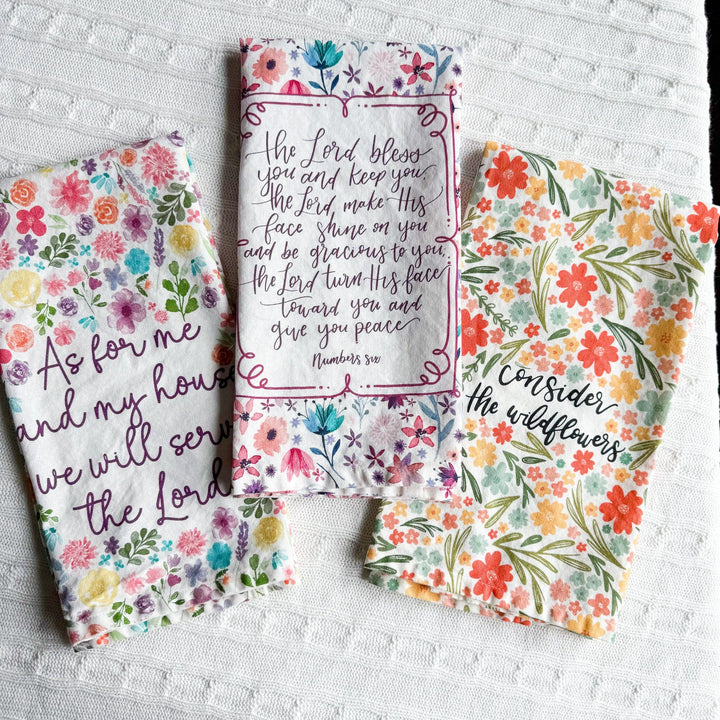 As for me
and my house
we will serve
the Lord
the Lord bless
you and keep you,
the Lord make His
face shine on you
and be gracious to you,
the Lord turn His face
toward you and
give you peace
Numbers six
consider
the wildflowers